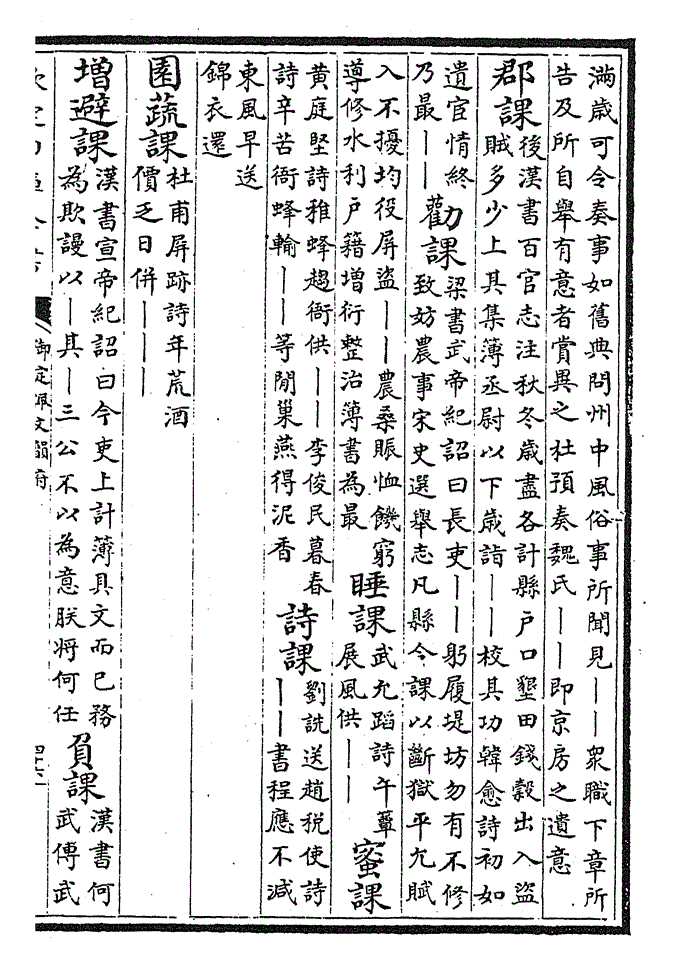 滿歲可令奏事如舊典問州中風俗事所聞見——衆職下章所
告及所自舉有意者賞異之杜預奏魏氏——即京房之遺意
郡課
後漢書百官志注秋冬歲盡各計縣戶口墾田錢穀出入盜
賊多少上其集簿丞尉以下歲詣——校其功韓愈詩初如
遺宦情終
乃最——
勸課
梁書武帝紀詔曰長吏——躬履堤坊勿有不修
致妨農事宋史選舉志凡縣令課以斷獄平允賦
入不擾均役屏盜——農桑賑恤饑窮
導修水利戶籍增衍整治簿書為最
睡課
武允蹈詩午蕈
展風供——
蜜課
黃庭堅詩稚蜂趨衙供——李俊民暮春
詩辛苦衙蜂輸——等閒巢燕得泥香
詩課
劉詵送趙税使詩
——書程應不減
東風早送
錦衣還
園蔬課
杜甫屏跡詩年荒酒
價乏日併———
增避課
漢書宣帝紀詔曰今吏上計簿具文而已務
為欺謾以—其—三公不以為意朕將何任
負課
漢書何
武傳武
御定佩文韻府